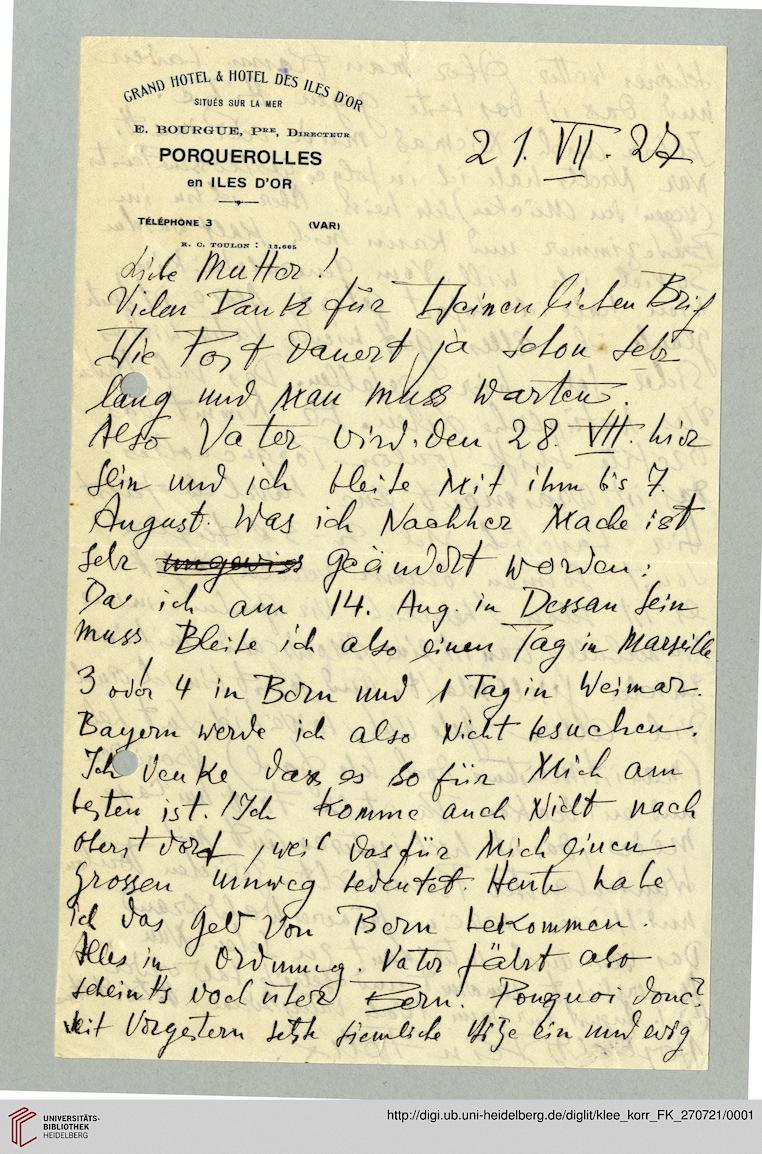 GRAND HOTEL & HOTEL DES ILES D'OR
SITUÉS SUR LA MER
E. BOURGUE, PRE, DIRECTEUR
PORQUEROLLES
en ILES D'OR
TÉLÉPHONE 3 (VAR)
R. C. TOULON : 13.665
21. VII. 27
Liebe Mutter!
Vielen Dank für Deinen lieben Brief
Die Post dauert ja schon sehr
lang und man muss warten.
Also Vater wird den 28. VII. hier
sein und ich bleibe mit ihm bis 7.
August. Was ich Nachher Mache ist
sehr ungewiss geändert worden:
Da ich am 14. Aug. in Dessau sein
muss, Bleibe ich also einen Tag in Marseille
3 oder 4 in Bern und 1 Tag in Weimar.
Bayern werde ich also Nicht besuchen.
Ich denke dass es so für Mich am
besten ist. Ich komme auch Nicht nach
oberstdorf, weil das für Mich einen
Grossen umweg bedeutet. Heute habe
ich das Geld von Bern bekommen.
Alles in Ordnung. Vater fährt also
scheints doch über Bern. Pourquoi donc?
Seit Vorgestern setzte ziemliche Hitze ein und ewig
UNIVERSITÄTS-
BIBLIOTHEK
HEIDELBERG
http://digi.ub.uni-heidelberg.de/diglit/klee_korr_FK_270721/0001